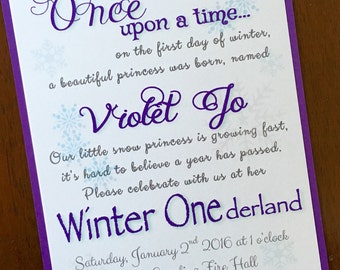 Once
upon a time...
on the first day of winter,
a beautiful princess was born, named
Violet Jo
Our little snow princess is growing fast,
it's hard to believe a year has passed,
Please celebrate with us at her
Winter One derland
Saturday, January 2nd 2016 at 1 o'clock
Fire Hall